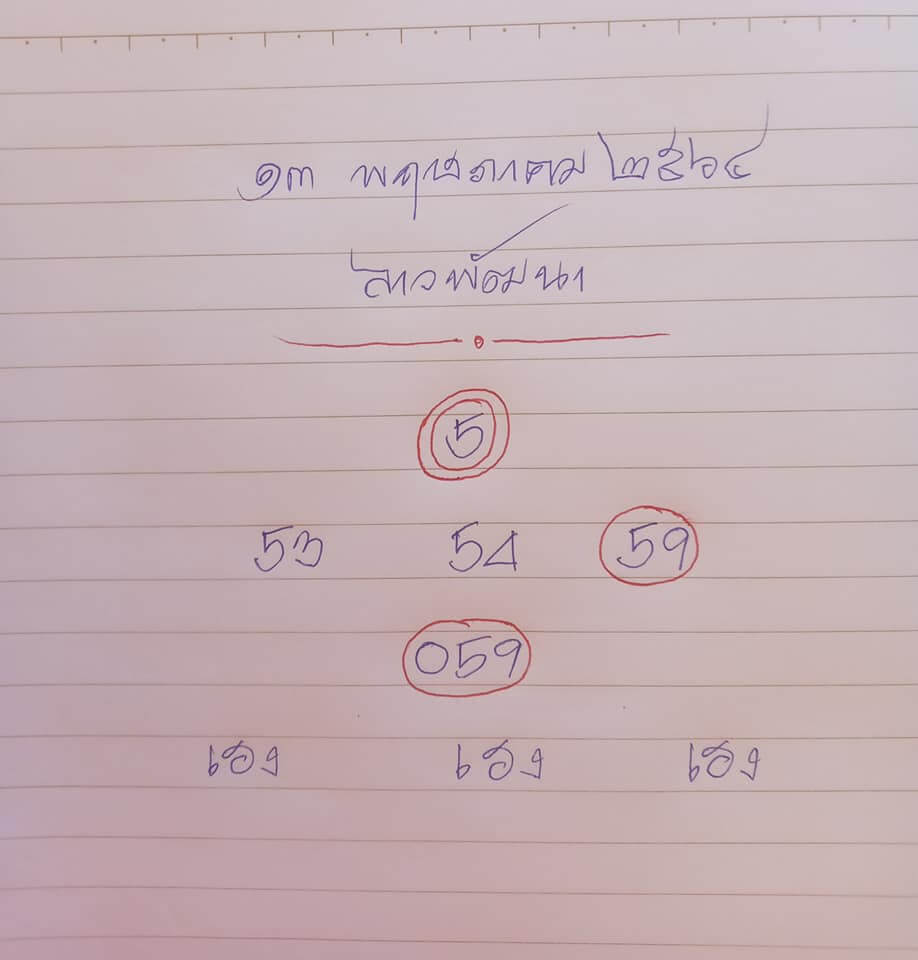 ๑๓ พฤษภาคม ๒๕๖๔
ลาวพัฒนา
5
53 54 59
059
เฮง เฮง เฮง